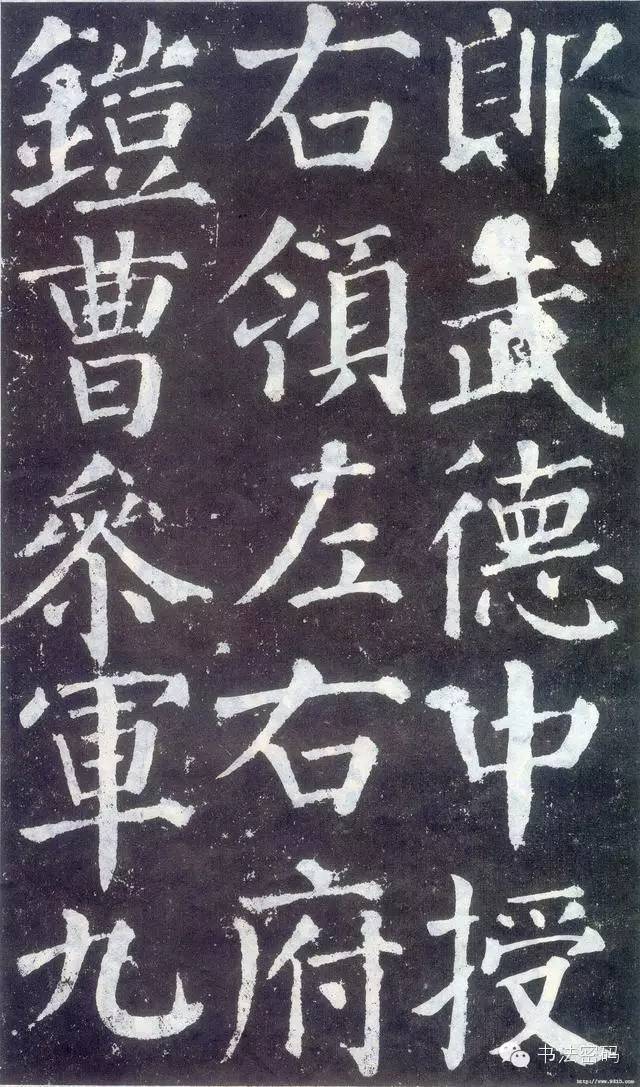 郎武德中授
右領左右府
鎧曹參軍九
书法密码